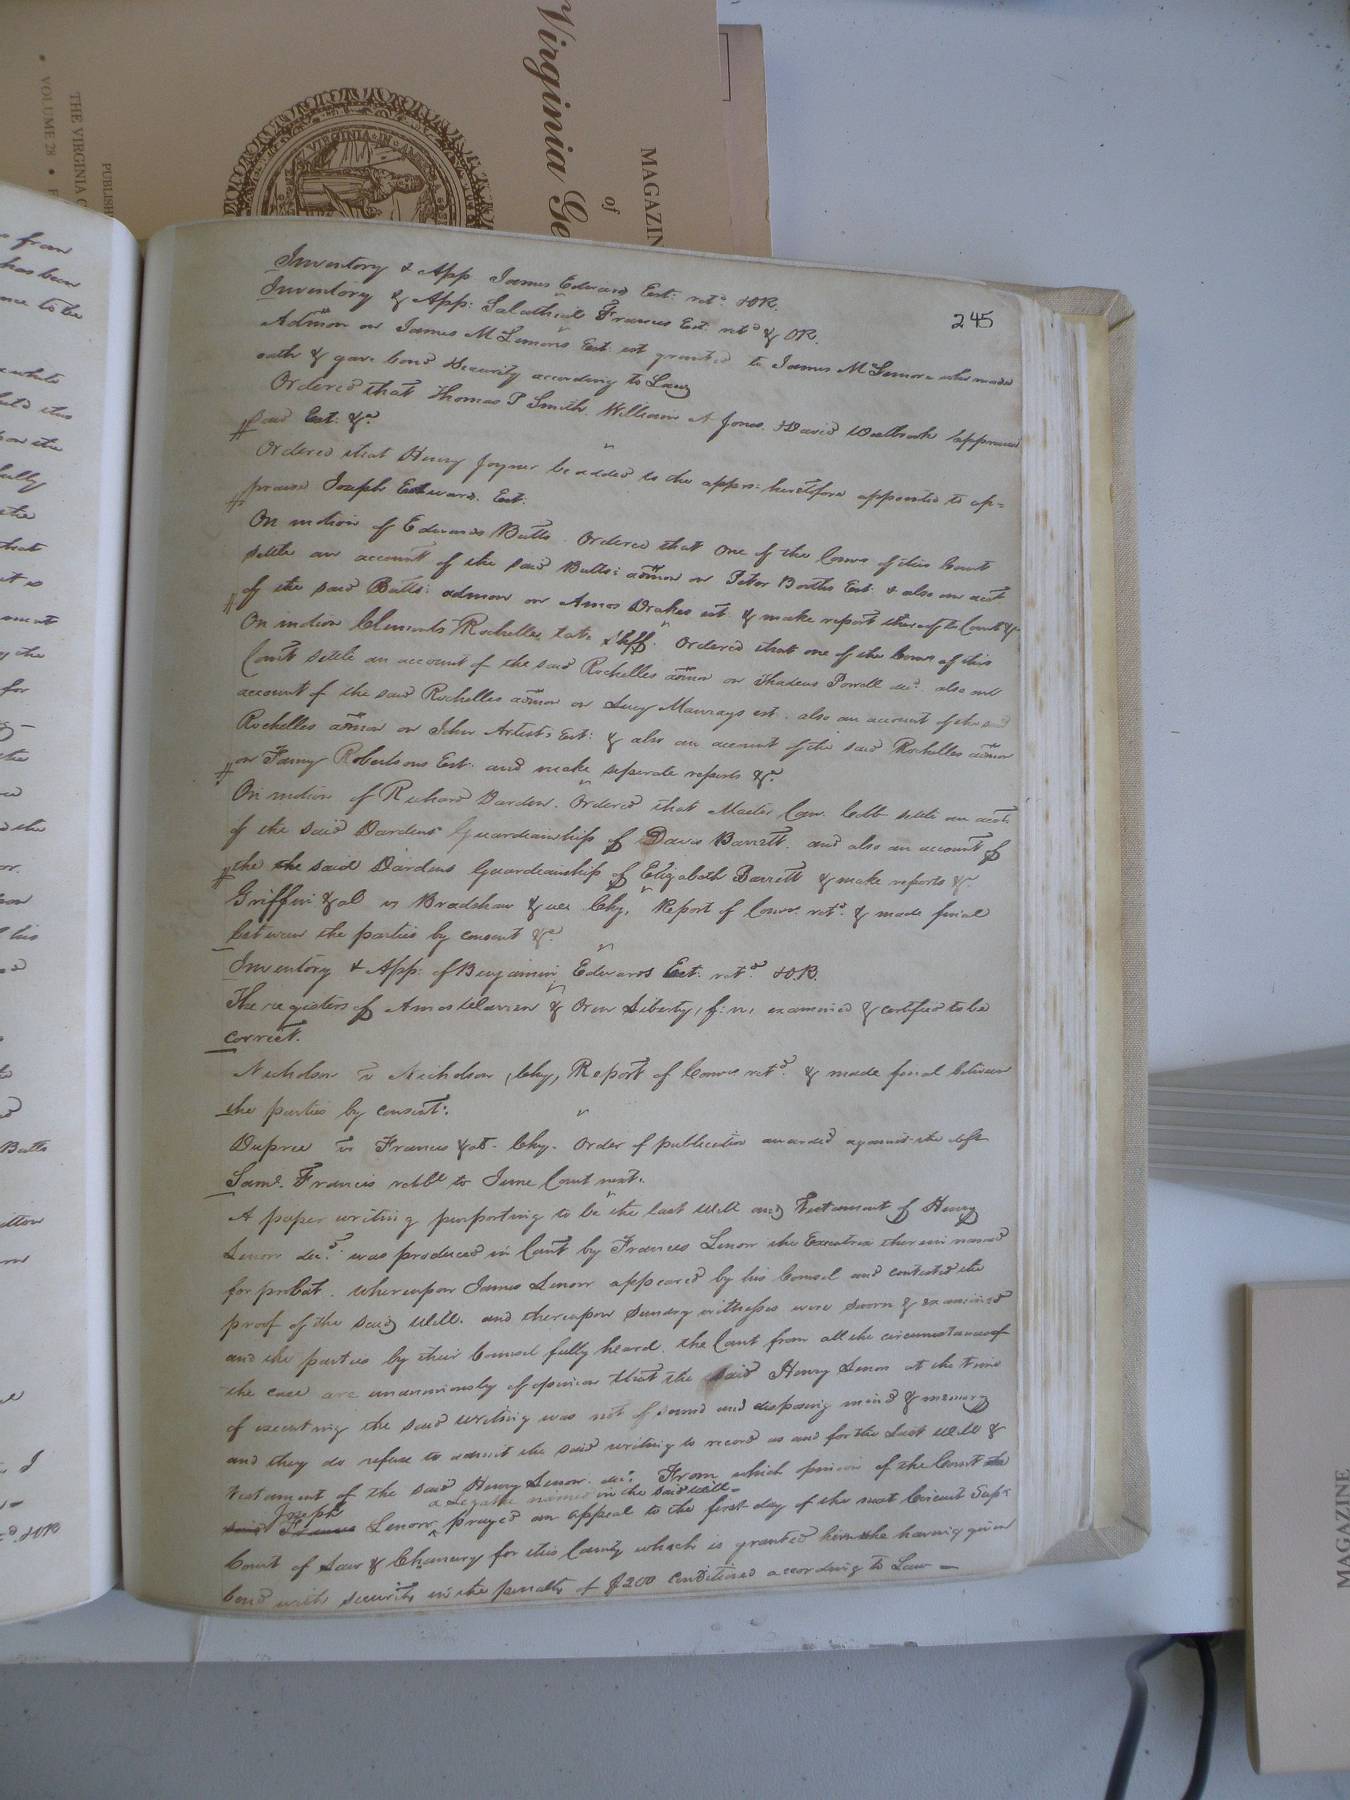 Virginia Ge
MAGAZIN
of
PUBLISH
THE VIRGINIA
VOLUME 28
VIRGINIA IN
245
from
has been
to be
Inventory & App James Edward Est: retd. &OR.
Inventory & App: Salathiel Francis Est. retd & OR.
Admon on James M Lemons Est. est granted to James M Lemore who made
oath & gave bond &security according to Law
Ordered that Thomas P Smith. William A Jones. &David Westbrook appraise
said Est: &c
Ordered that Henry Joyner be added to the apprs: heretofore appointed to ap=
praise Joseph Edwards. Est:
On motion of Edwards Butts. Ordered that one of the Coms of this Court
settle an account of the said Butts: admon on Peter Booths Est: & also an acct
of the said Butts: admon on Amos Drakes est. & make report thereof to Court &c
On motion Clements Rochelle, late Shff. Ordered that one of the Coms of this
Court settle an account of the said Rochelles admon on Thadeus Powell decd. also an
account of the said Rochelles admon on Lucy Maurays est. also an account of the sd
Rochelles admon on John Artists Est: & also an account of the said Rochelles admon
on Fanny Robertsons Est. and make seperate reports &c.
On motion of Richard Darden. Ordered that Master Com. Cobb settle an acct:
of the said Dardens Guardianship of Davis Barrett. and also an account of
the the said Dardens Guardianship of Elizabeth Barrett & make reports &c.
Griffin &al vs Bradshaw & Chy, Report of Comr. retd. & made final
between the parties by consent &c
Inventory & App: of Benjamin Edwards Est. retd. &OR.
The registers of Amos Warren & Orin Liberty, f:n, examined & certified to be
correct.
Nicholson vs Nicholson, Chy, Report of Comrs retd. & made final between
the parties by consent:
Dupree vs Francis &al- Chy. Order of publication awarded against the deft
Saml. Francis retble to June Court next.
A paper writing purporting to be the last Will and Testament of Henry
Lenow decd. was produced in Court by Frances Lenow the Executrix therein named
for probat. whereupon James Lenow appeared by his Counsel and contested the
proof of the said Will. and thereupon sundry witnesses were sworn & examined
and the parties by their Counsel fully heard. the Court from all the circumstances of
the case are unanimously of opinion that the said Henry Lenow at the time
of executing the said writing was not of sound and disposing mind & memory
and they do refuse to admit the said writing to record as and for the Last Will &
testament of the said Henry Lenow. decd. From which opinion of the Court the
a Legatee named in the said will-
Joseph
said Frances Lenow prayed an appeal to the first day of the next Circuit Supr
Court of Law & Chancery for this County which is granted him he having given
bond with security in the penalty of $200 conditioned according to Law -
MAGAZINE